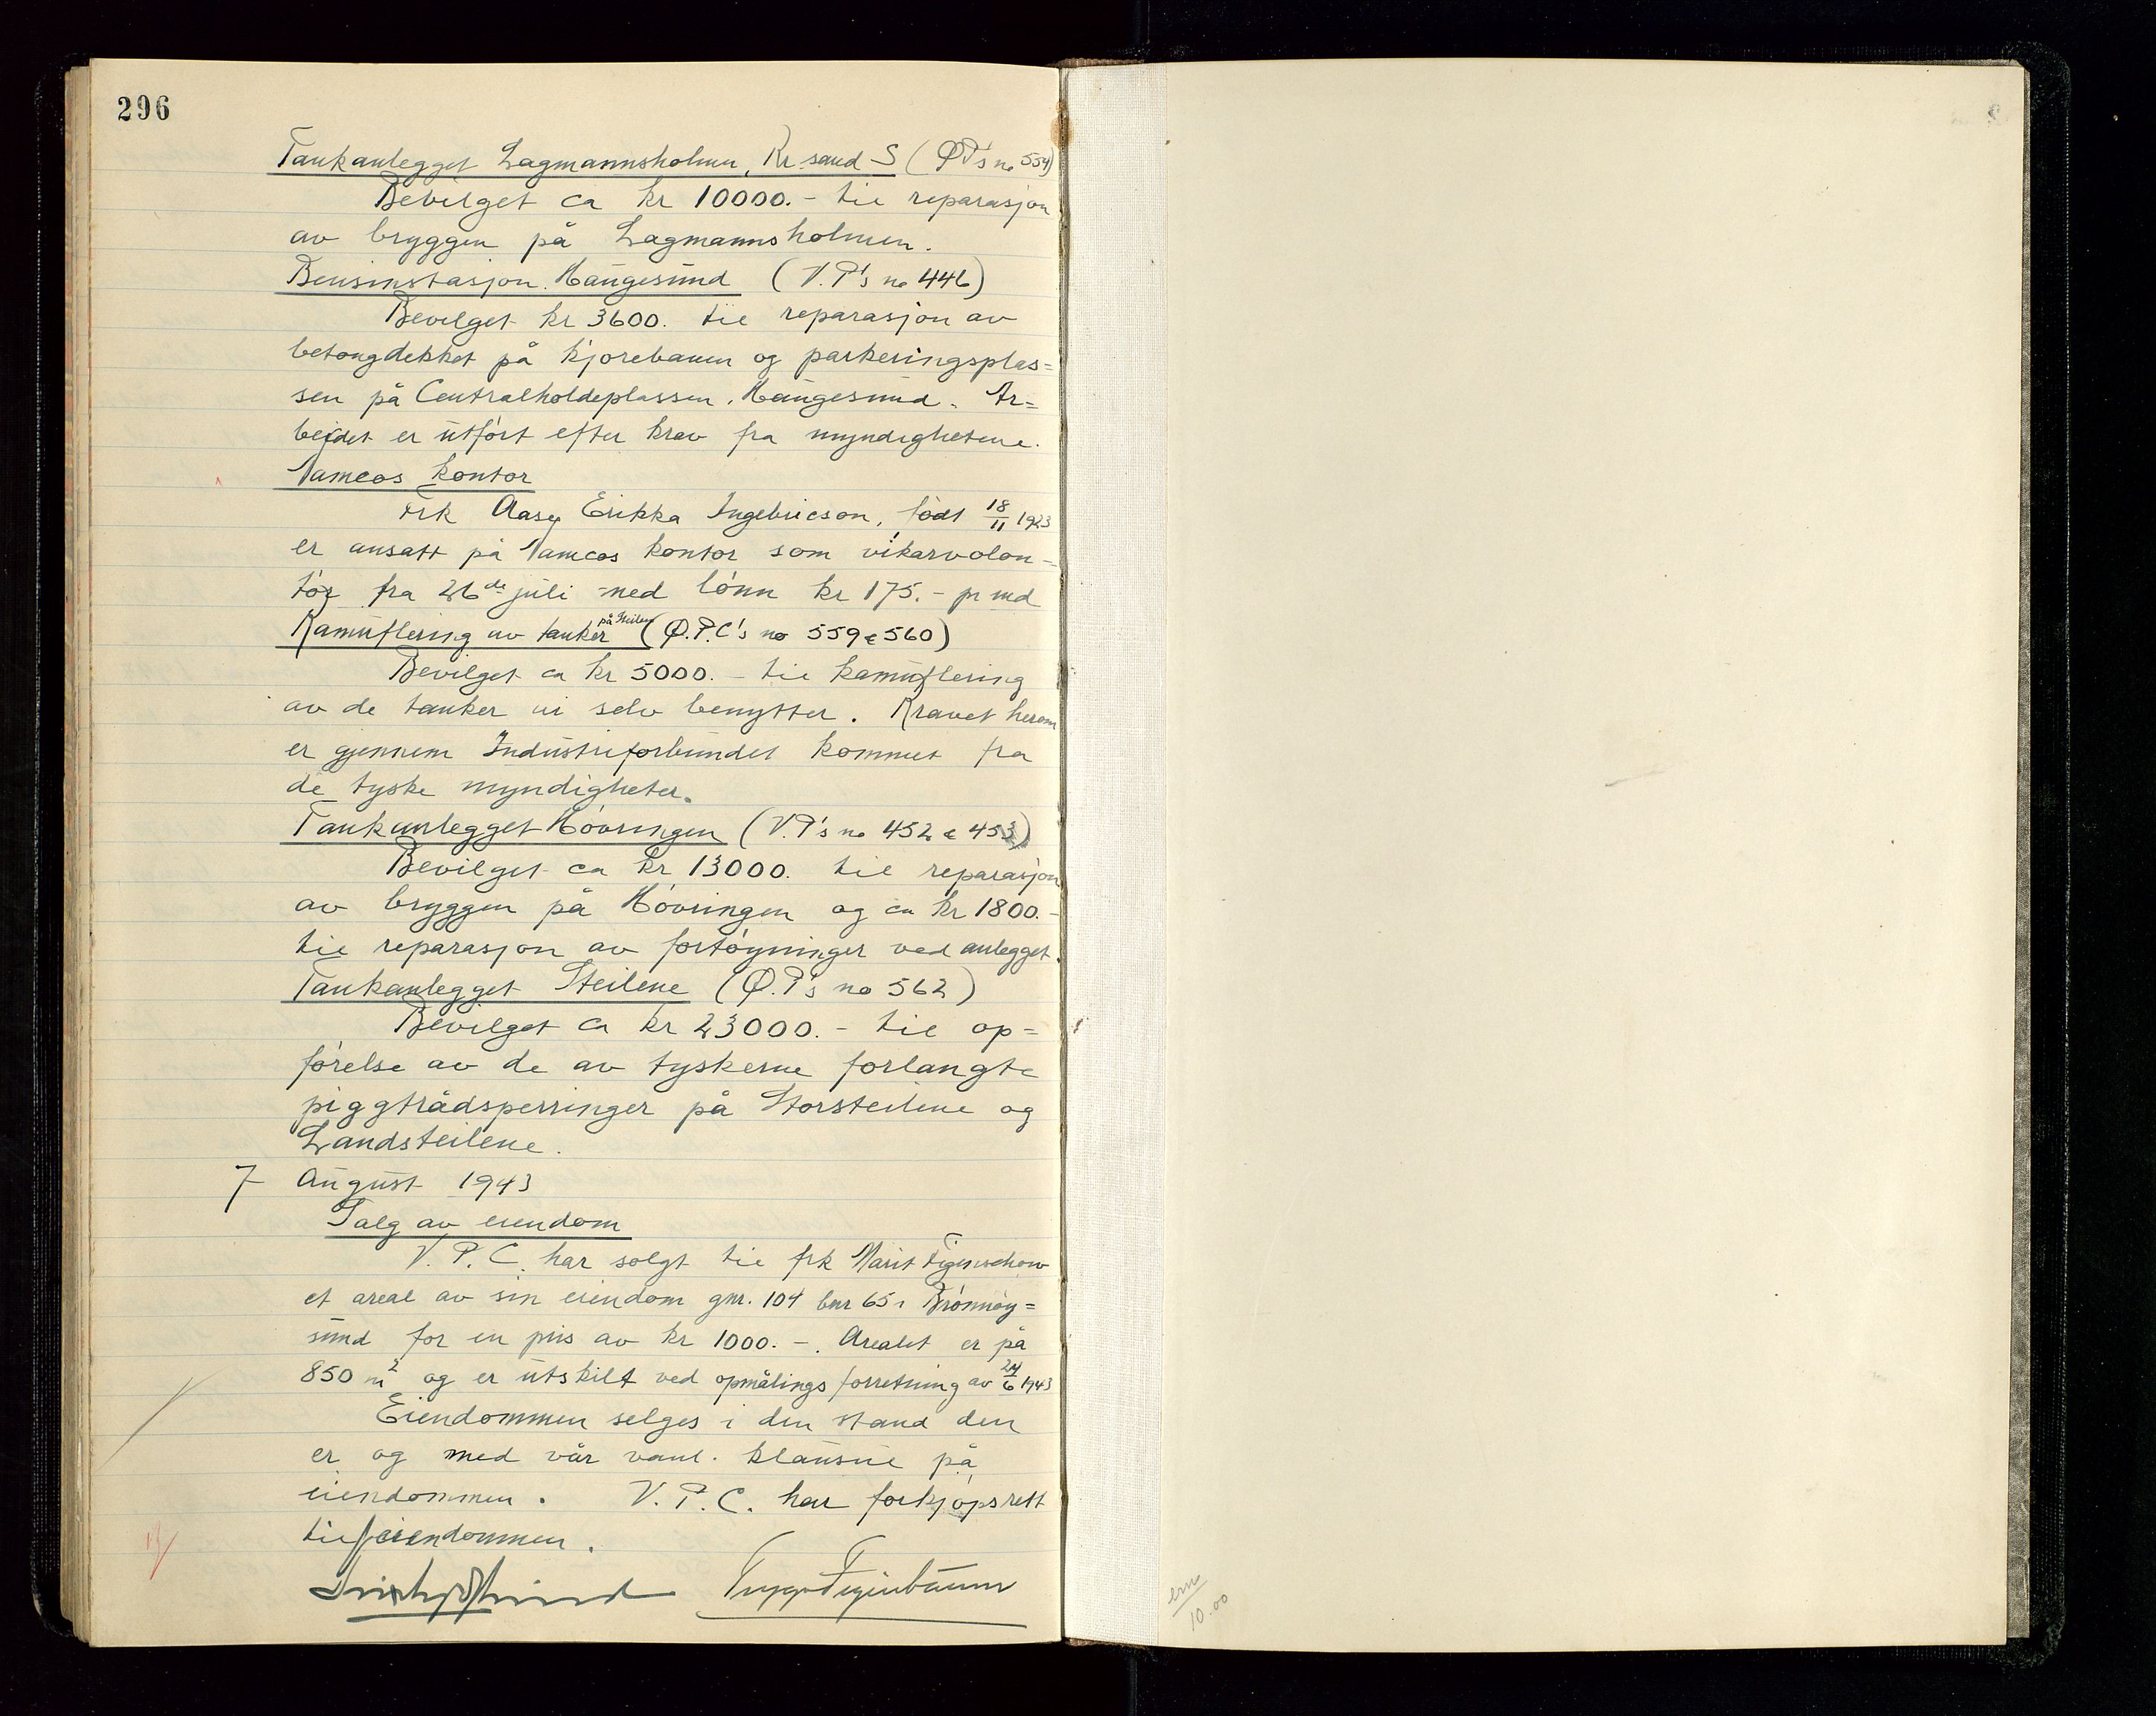 296
Tankanlegget Lagmannsholmen, Kr sand S (Ø.P's no 554)
Bevilget ca kr 10000.- til reparasjon
av bryggen på Lagmannsholmen.
Bensinstasjon. Haugesund (V.P's no 446)
Bevilget kr 3600. til reparasjon av
betongdekket på kjørebanen og parkeringsplas=
sen på Centralholdeplassen, Haugesund. Ar=
beidet er utført efter krav fra myndighetene.
Namcos kontor
Frk Aasy Erikka Ingebricson, født 18/11 1923
er ansatt på Namcos kontor som vikarvolon=
tør fra 26de juli med lønn kr 175.- pr md
Kamuflering av tanker på Steilene (Ø.P.C's no 559 & 560)
Bevilget ca kr 5000.- til kamuflering
av de tanker vi selv benytter. Kravet herom
er gjennem Industriforbundet kommet fra
de tyske myndigheter.
Tankanlegget Høvringen (V.P's no 452 & 453)
Bevilget ca kr 13000. til reparasjon
av bryggen på Høvringen og ca kr 1800.-
til reparasjon av fortøyninger ved anlegget.
Tankanlegget Steilene (Ø.P's no 562)
Bevilget ca kr 23000.- til op=
førelse av de av tyskerne forlangte
piggtrådsperringer på Storsteilene og
Landsteilene.
7 August 1943
Salg av eiendom
V.P.C. har solgt til frk Marit Figenschow
et areal av sin eiendom gnr. 104 bnr 65 i Brønnøy=
sund for en pris av kr 1000.-. Arealet er på
850 m² og er utskilt ved opmålingsforretning av 24/6 1943
Eiendommen selges i den stand den
er og med vår vanl. klausul på
eiendommen. V.P.C. har forkjøpsrett
til eiendommen.
10.00